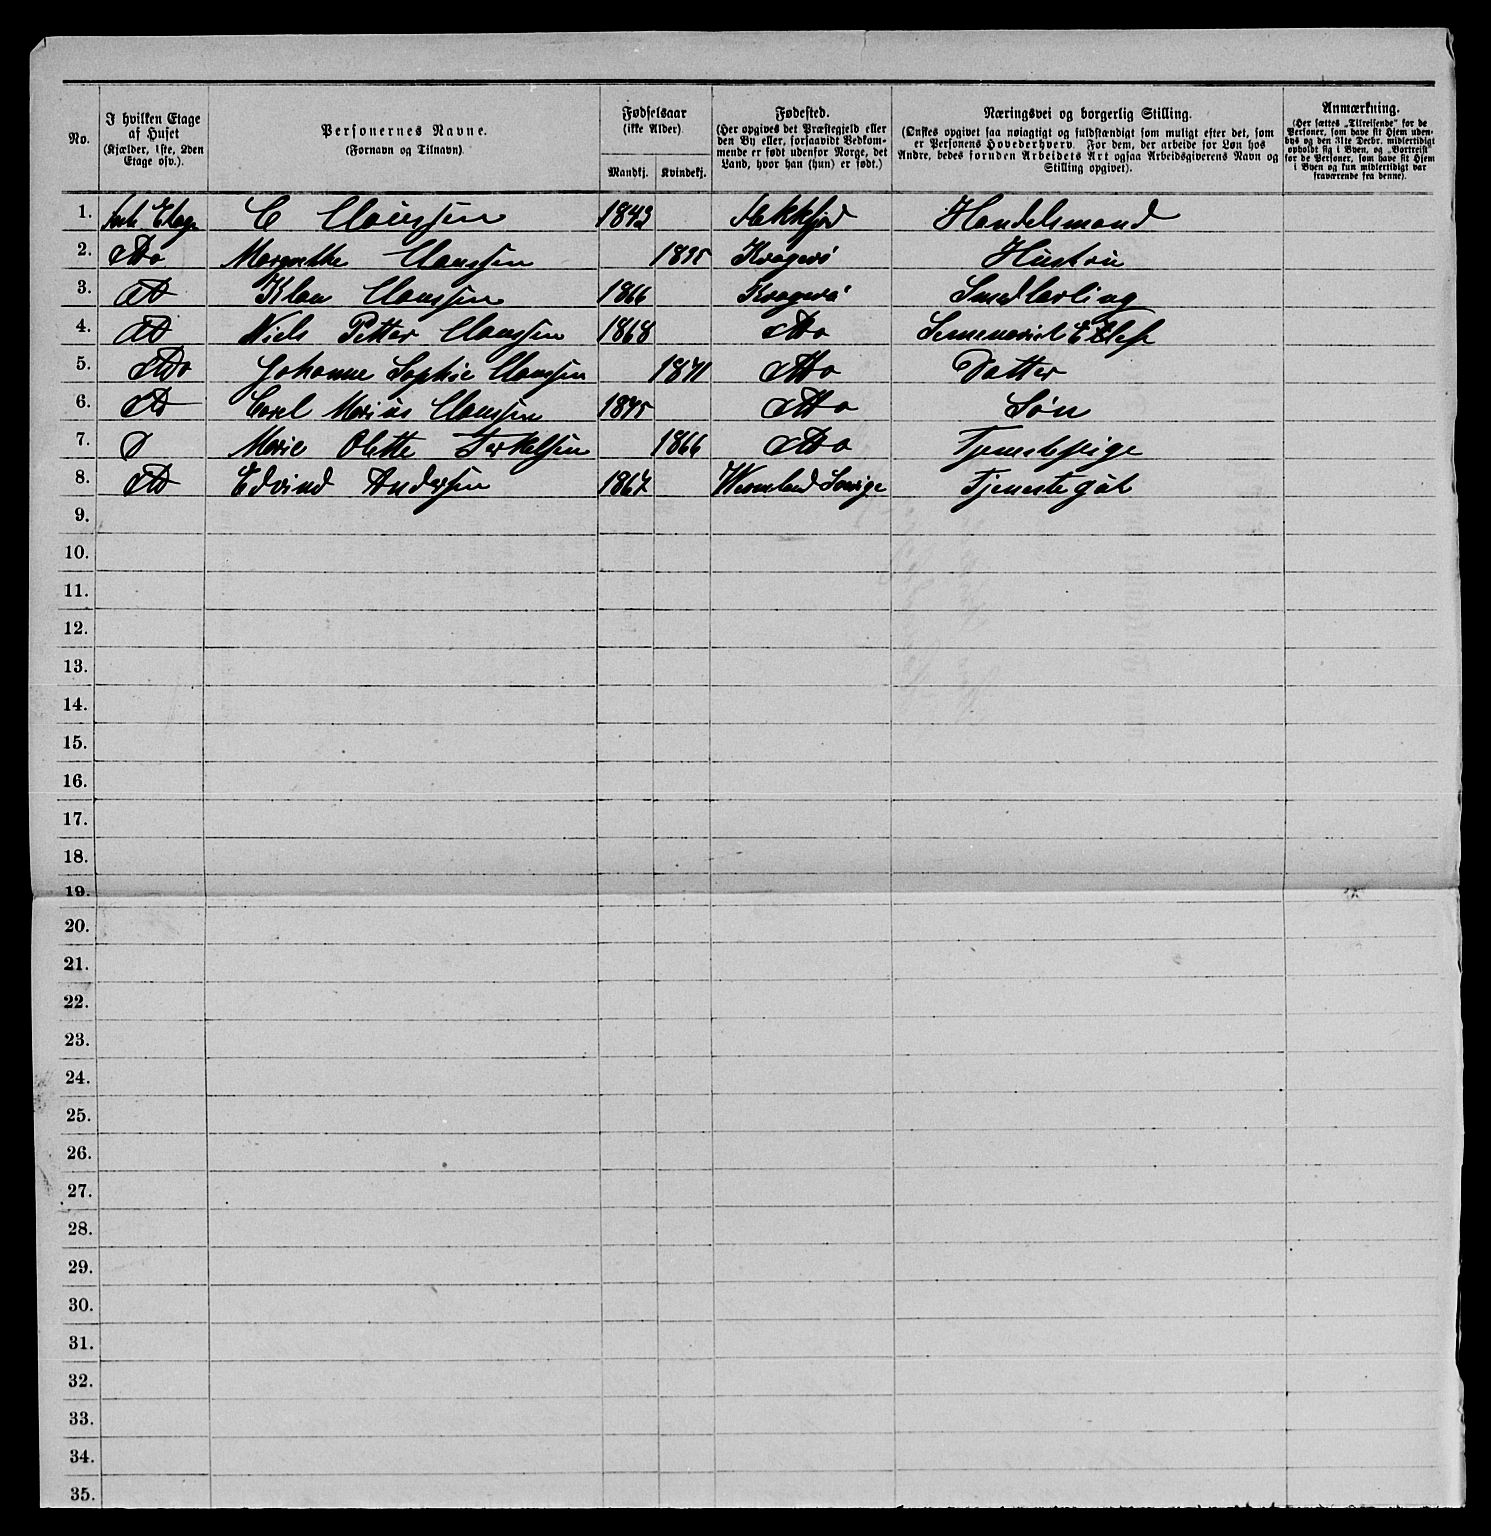 No.
I hvilken Etage af Huset
(Kjælder, 1ste, 2den Etage osv.).
Personernes Navne.
(Fornavn og Tilnavn)
Fødselsaar
(ikke Alder)
Mandkj. Kvindekj.
Fødested.
(Her opgives det Præstegjeld eller
den By eller, forsaavidt Vedkom-
mende er født udenfor Norge, det
Land, hvor han (hun) er født.)
Næringsvei og borgerlig Stilling.
(Ønskes opgivet saa nøiagtigt og fuldstændigt som muligt efter det, som
er Personens Hovederhverv. For dem, der arbeide for Løn hos
Andre, bedes foruden Arbeidets Art ogsaa Arbeidsgiverens Navn og
Stilling opgivet).
Anmærkning.
(Her sættes „Tilreisende“ for de
Personer, som have sit Hjem uden-
bys og den 31te Decbr. midlertidigt
opholdt sig i Byen, og „Bortreist“
for de Personer, som have sit Hjem
i Byen og kun midlertidigt var
fraværende fra denne).
1. Etage C Claussen 1843 Handelsmand
2. Do Margrethe Claussen 1835 Kragerø Hustru
3. D Klau Claussen 1866 Kragerø Smedlærling
4. D Niels Petter Claussen 1868 Do
5. Do Johanne Sophie Claussen 1871 Do Datter
6. D Carel Marius Claussen 1875 Do Søn
7. D Marie Olette Terkelsen 1866 Do Tjenestepige
8. D Edvind Andersen 1867 Wermland Sverige Tjenestegut
9.
10.
11.
12.
13.
14.
15.
16.
17.
18.
19.
20.
21.
22.
23.
24.
25.
26.
27.
28.
29.
30.
31.
32.
33.
34.
35.